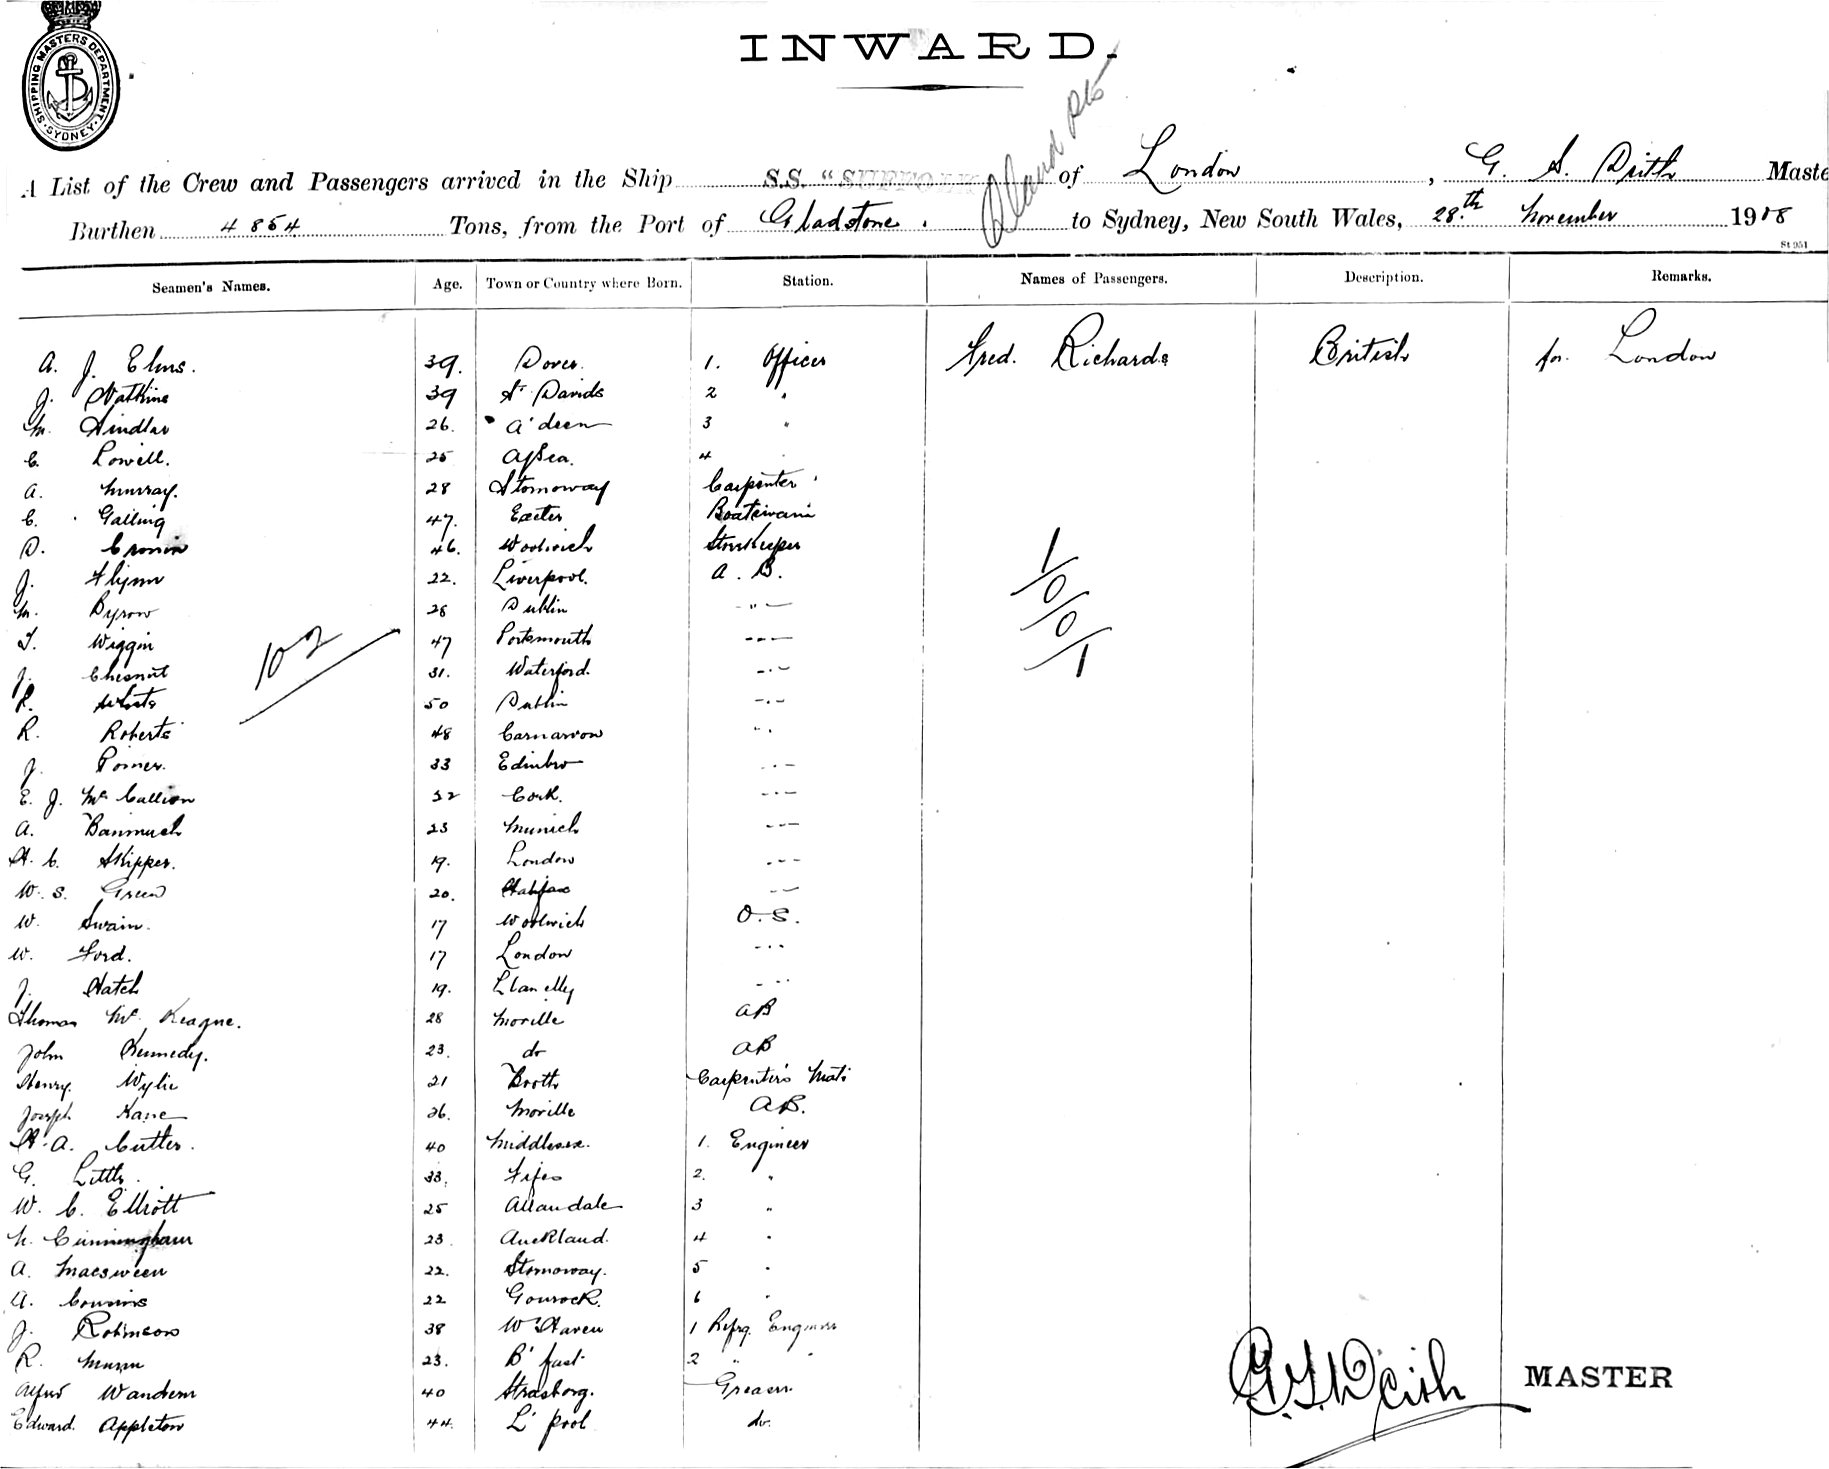 SHIPPING MASTERS DEPARTMENT. SYDNEY
INWARD.
A List of the Crew and Passengers arrived in the Ship S.S. "SUFFOLK" of London, G. S. Master
Burthen 4854 Tons, from the Port of Gladstone. to Sydney, New South Wales, 28.th November 1908
St 951
Seamen's Names. Age. Town or Country where Born. Station. Names of Passengers. Description. Remarks.
A. J. Elms. 39. Dover. 1. Officer Fred. Richards British for London
J. Watkins 39 St Davids 2 "
M. Hindlar 26. A'deen 3 "
C. Lowell. 25 4
A. Murray. 28 Stornoway Carpenter
C. Galling 47. Exeter Boatswain
D. Cronin 46. Woolwich Storekeeper
J. Flynn 22. Liverpool. A. B.
M. Byrow 28 Dublin -"-
T. Wiggin 47 Portsmouth ---
J. Chesnut 31. Waterford. -.-
102
1/0/0/1
50 Dublin -.-
R. Roberts 48 Carnarvon ".
J. 33 Edinbro ..-
E. J. McCallion 32 Cork. -.-
A. 23 Munich ---
H. C. Skipper. 19. London .--
W. S. Green 20. Halifax .--
W. Swain. 17 Woolwich O. S.
W. Ford. 17 London -..
J. Hatch 19. Llanelly -..
Thomas Mc Keague. 28 Moville AB
John Kennedy. 23. do AB
Henry. Wylie 21 Carpenter's Mate
Joseph Kane 26. Moville A.B.
H. A. Cutler. 40 Middlesex. 1. Engineer
G. Little. 33. Fife 2. "
W. C. Elliott 25 Allandale 3 "
Cunningham 23. Auckland. 4 "
A. Macsween 22. Stornoway. 5 "
A. Cousins 22 Gourock. 6 "
J. Robinson 38 W'Haven 1 Refrg. Engineer
R. Munn 23. B'fast 2 " "
Alfred Wandem 40 Strasborg. Greaser.
Edward. Appleton 44. L'pool do.
MASTER